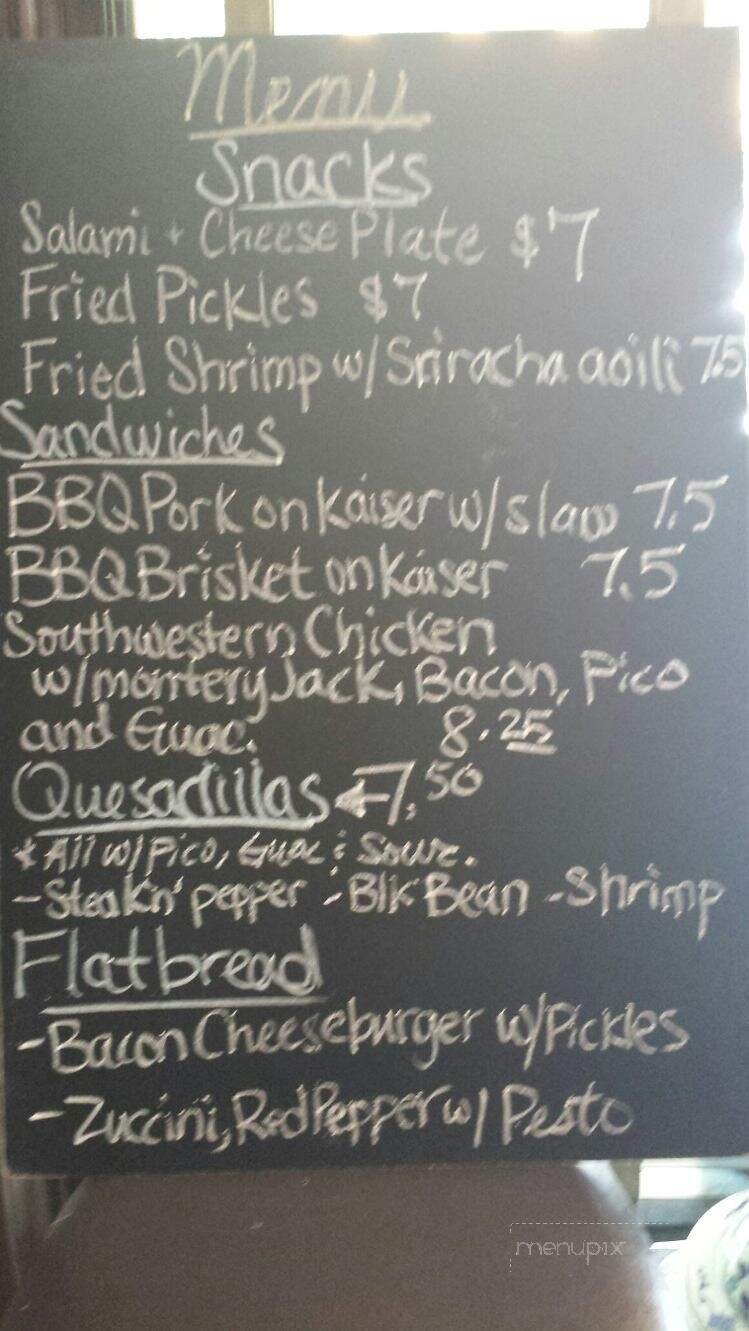 Menu
Snacks
Salami + Cheese Plate $7
Fried Pickles $7
Fried Shrimp w/ Sriracha aoili 7.5
Sandwiches
BBQ Pork on Kaiser w/ slaw 7.5
BBQ Brisket on Kaiser 7.5
Southwestern Chicken
w/ montery Jack, Bacon, Pico
and Guac. 8.25
Quesadillas 7.50
* All w/ Pico, Guac & Sour.
- Steak n' pepper - Blk Bean - Shrimp
Flatbread
- Bacon Cheeseburger w/ Pickles
- Zuccini, Red Pepper w/ Pesto
menupix